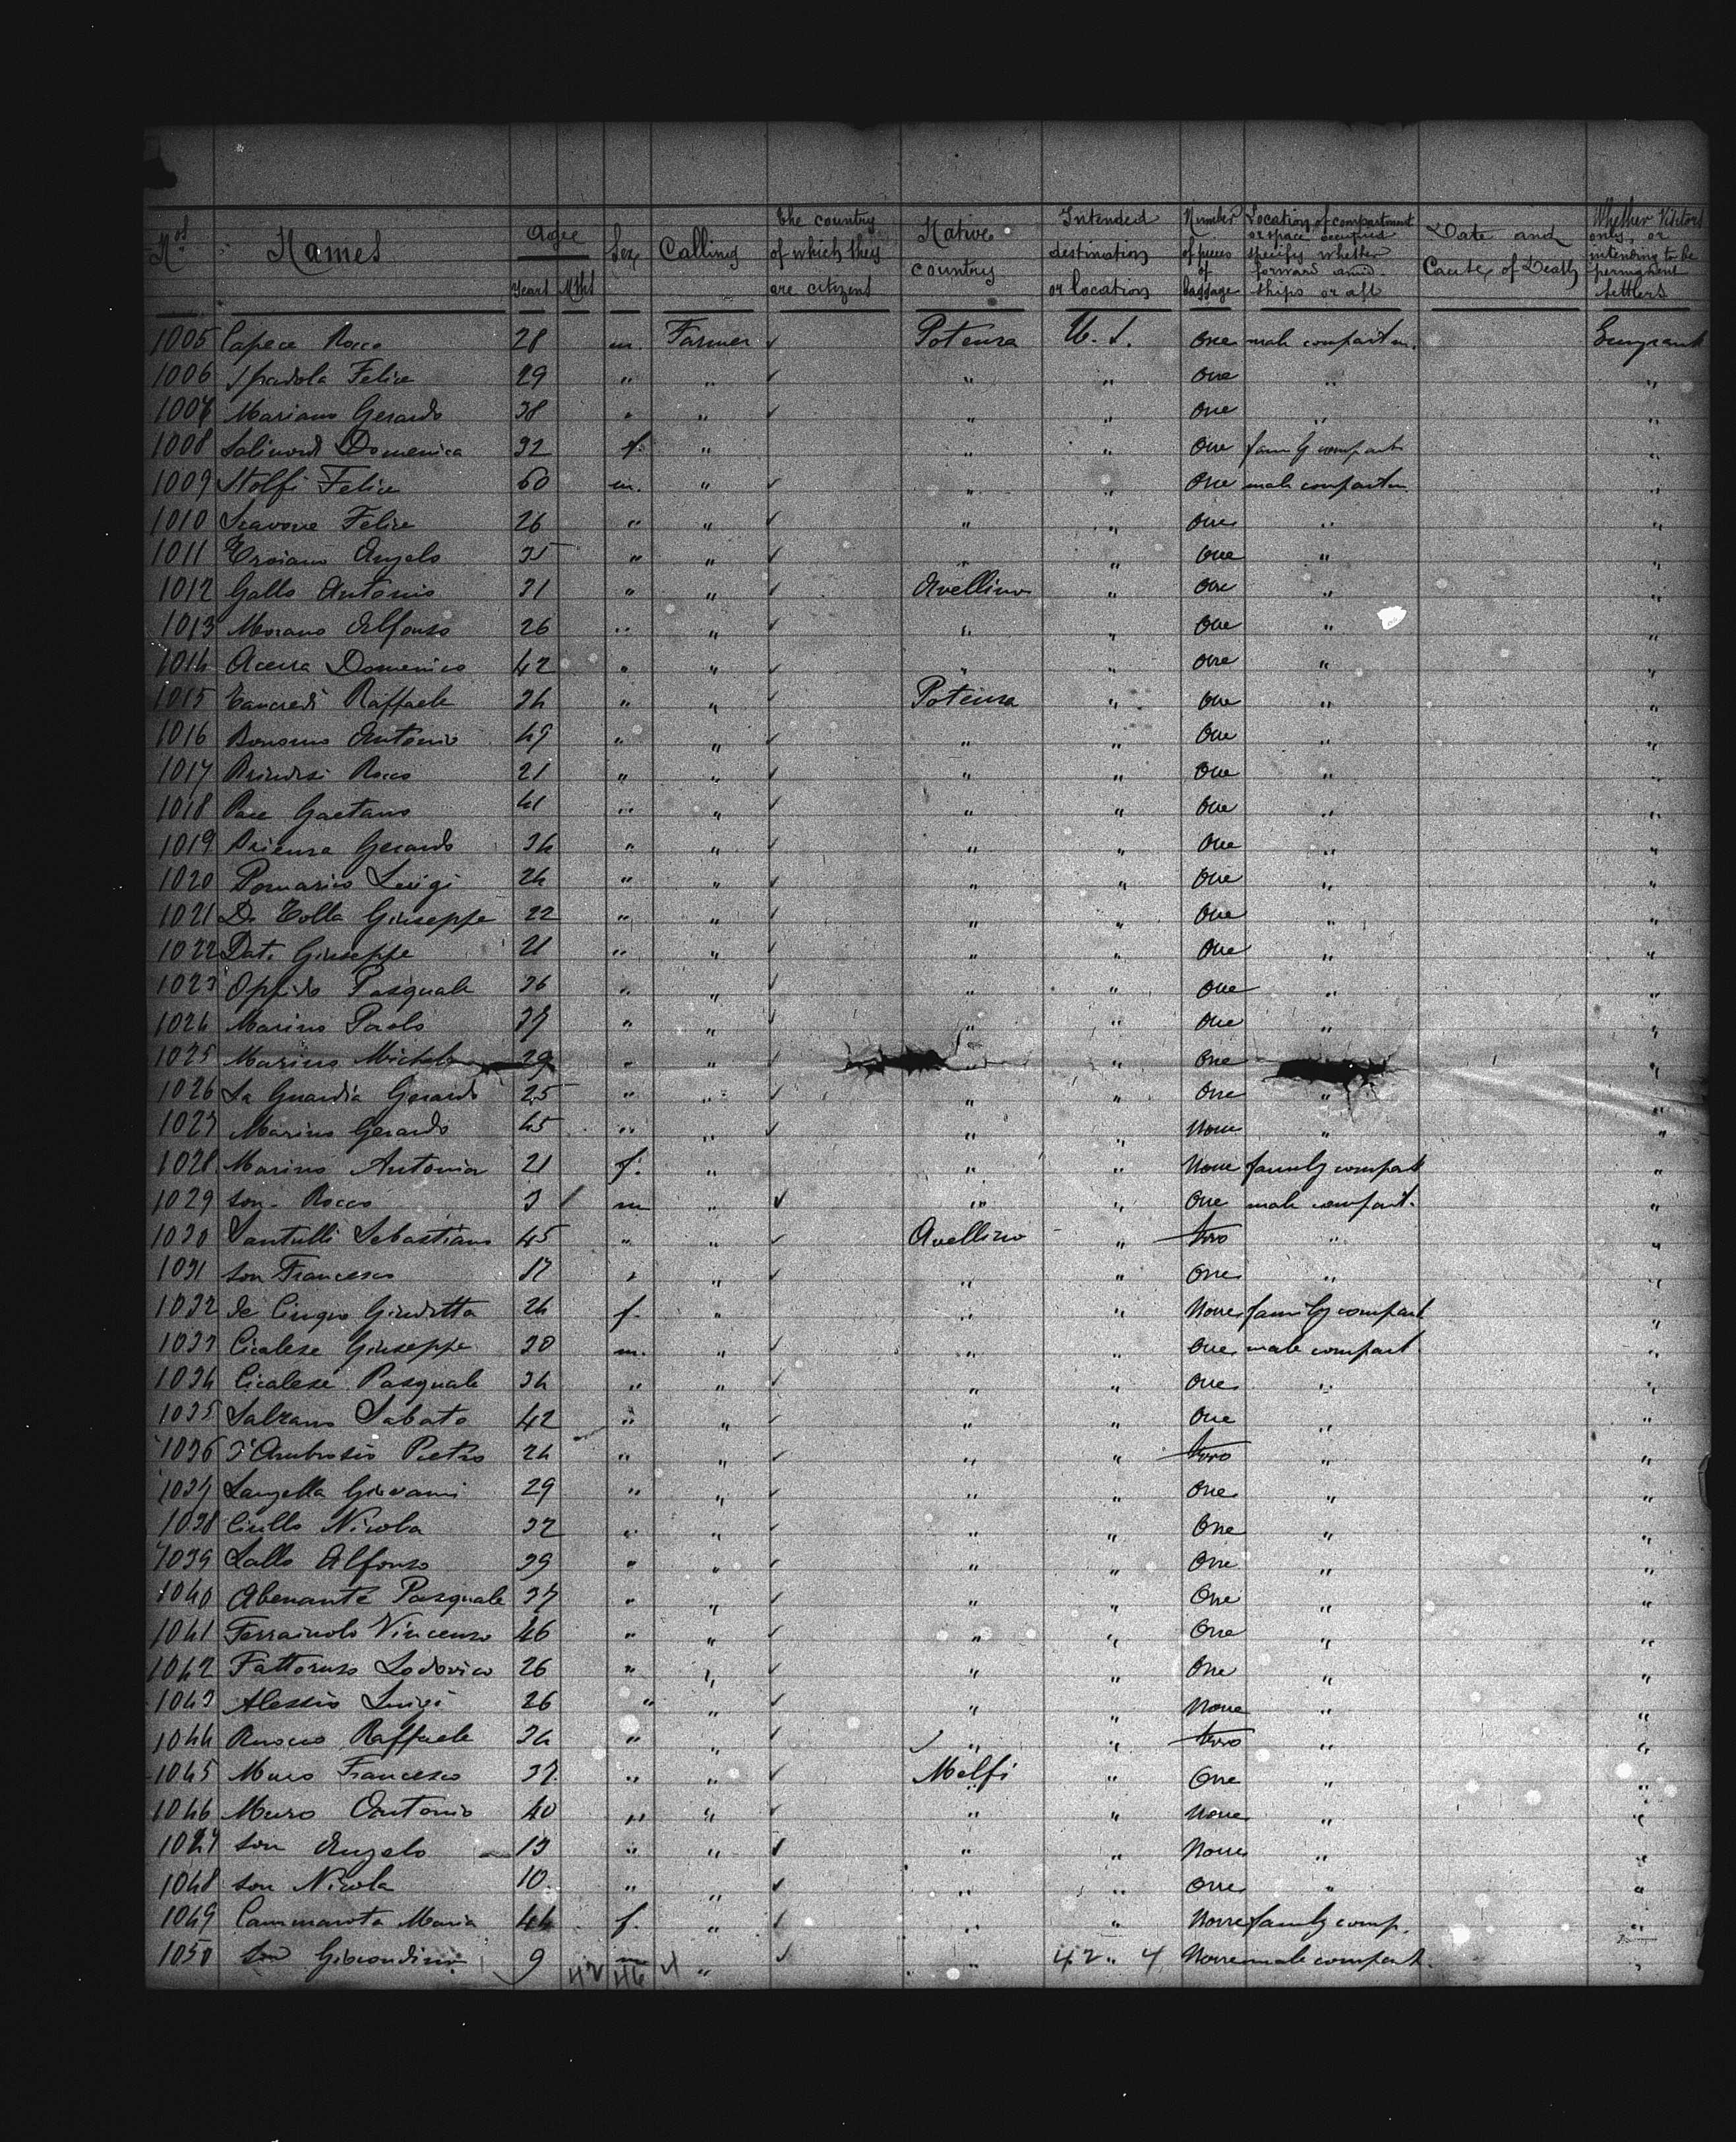 Nos Names Agee Years Mths Sex Calling the country of which they are citizens Native country Intended destination or location Number of pieces of baggage Location of compartment or space occupied specify whether forward amid-ships or aft Date and Cause of Death Whether Visitors only, or intending to be permanent settlers
1005 Capece Rocco 28 m. Farmer ✓ Potenza U. S. One male compartm. Emigrant
1006 Spadola Felice 29 " " ✓ " " One " "
1007 Mariano Gerardo 38 " " ✓ " " One " "
1008 Domenica 32 f. " " " One family compart "
1009 Stolfi Felice 60 m. " ✓ " " One male compartm. "
1010 Scavone Felice 26 " " ✓ " " One " "
1011 Troiano Angelo 35 " " ✓ " " One " "
1012 Gallo Antonio 31 " " ✓ Avellino " One " "
1013 Morano Alfonso 26 " " ✓ " " One " "
1014 Acerra Domenico 42 " " ✓ " " One " "
1015 Tancredi Raffaele 34 " " ✓ Potenza " One " "
1016 Bonomo Antonio 49 " " ✓ " " One " "
1017 Brindisi Rocco 21 " " ✓ " " One " "
1018 Pace Gaetano 41 " " ✓ " " One " "
1019 Brienza Gerardo 34 " " ✓ " " One " "
1020 Pomarico Luigi 24 " " ✓ " " One " "
1021 De Tolla Giuseppe 22 " " ✓ " " One " "
1022 Dati Giuseppe 21 " " ✓ " " One " "
1023 Oppido Pasquale 36 " " ✓ " " One " "
1024 Marino Paolo 37 " " ✓ " " One " "
1025 Marino Michele 29 " " ✓ " " One "
1026 La Guardia Gerardo 25 " " ✓ " " One " "
1027 Marino Gerardo 45 " " ✓ " " None " "
1028 Marino Antonia 21 f. " " " None family compart "
1029 son Rocco 3 m " ✓ " " One male compart. "
1030 Santulli Sebastiano 45 " " ✓ Avellino " two " "
1031 son Francesco 17 " " ✓ " " One " "
1032 de Cinque Giuditta 24 f. " " " None family compart "
1033 Cicalese Giuseppe 30 m. " ✓ " " One male compart. "
1034 Cicalese Pasquale 34 " " ✓ " " One " "
1035 Salzano Sabato 42 " " ✓ " " One " "
1036 d'Ambrosio Pietro 24 " " ✓ " " two " "
1037 Langella Giovanni 29 " " ✓ " " One " "
1038 Cirillo Nicola 32 " " ✓ " " One " "
1039 Lallo Alfonso 39 " " ✓ " " One " "
1040 Abenante Pasquale 37 " " ✓ " " One " "
1041 Ferraiuolo Vincenzo 46 " " ✓ " " One " "
1042 Fattoruso Lodovico 26 " " ✓ " " One " "
1043 Alessio Luigi 26 " " ✓ " " None " "
1044 Ruocco Raffaele 34 " " ✓ " " two " "
1045 Muro Francesco 37 " " ✓ Melfi " One " "
1046 Muro Antonio 40 " " ✓ " " None " "
1047 son Angelo 13 " " ✓ " " None " "
1048 son Nicola 10 " " ✓ " " One " "
1049 Cammarota Maria 44 f. " ✓ " " None family comp. "
1050 son Giocondino 9 m " ✓ " " None male compart. "
42 46 4 42 4